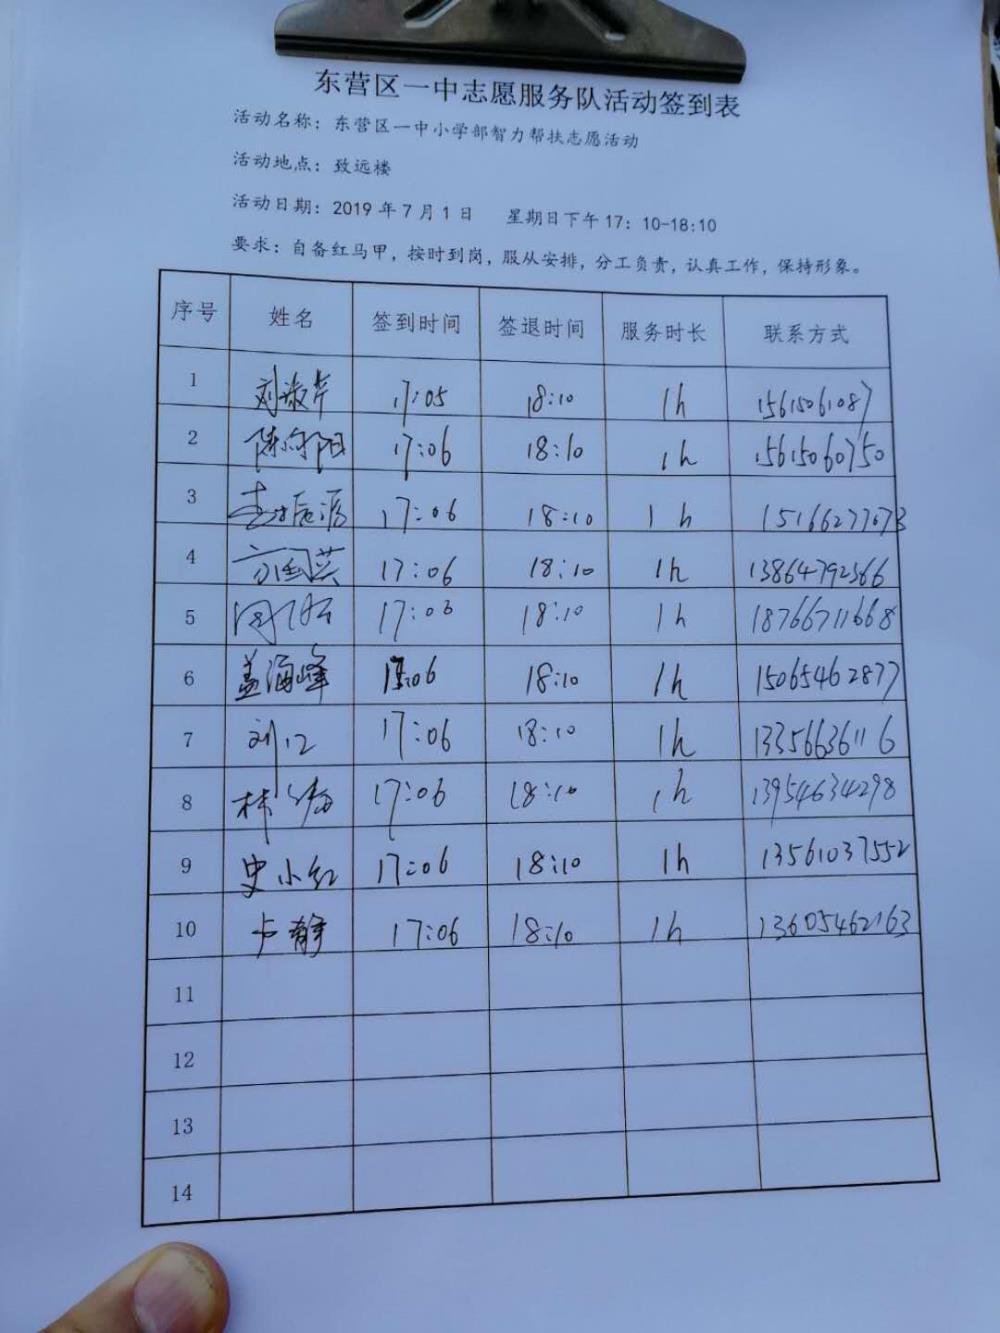 东营区一中志愿服务队活动签到表
活动名称：东营区一中小学部智力帮扶志愿活动
活动地点：致远楼
活动日期：2019年7月1日 星期日下午17：10-18:10
要求：自备红马甲，按时到岗，服从安排，分工负责，认真工作，保持形象。
序号 姓名 签到时间 签退时间 服务时长 联系方式
1 刘淑芹 17:05 18:10 1h 15615061087
2 陈向阳 17:06 18:10 1h 15615060750
3 17:06 18:10 1h
4 方国英 17:06 18:10 1h 13864792366
5 18:10 1h 18766711668
6 盖海峰 18:10 1h 15065462877
7 17:06 18:10 1h 13356636116
8 17:06 18:10 1h 13954634298
9 史小红 17:06 18:10 1h 13561037552
10 17:06 18:10 1h 13605462163
11
12
13
14